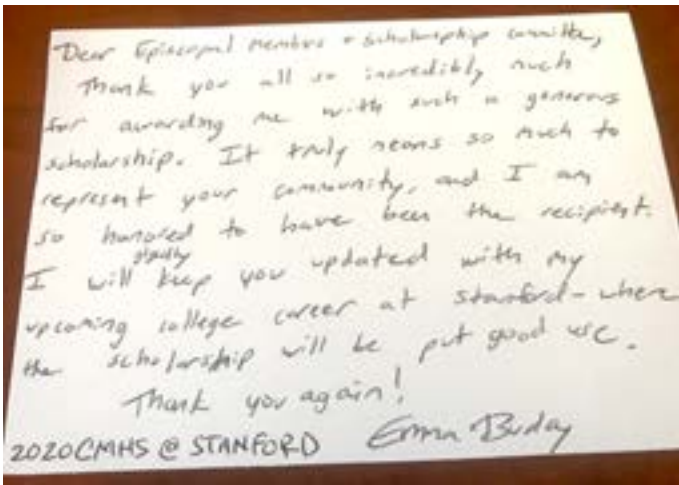 Dear Episcopal members + scholarship committee,
Thank you all so incredibly much
for awarding me with such a generous
scholarship. It truly means so much to
represent your community, and I am
so honored to have been the recipient.
I will gladly keep you updated with my
upcoming college career at Stanford - where
the scholarship will be put good use.
Thank you again!
2020 CMHS @ STANFORD Emma Buday